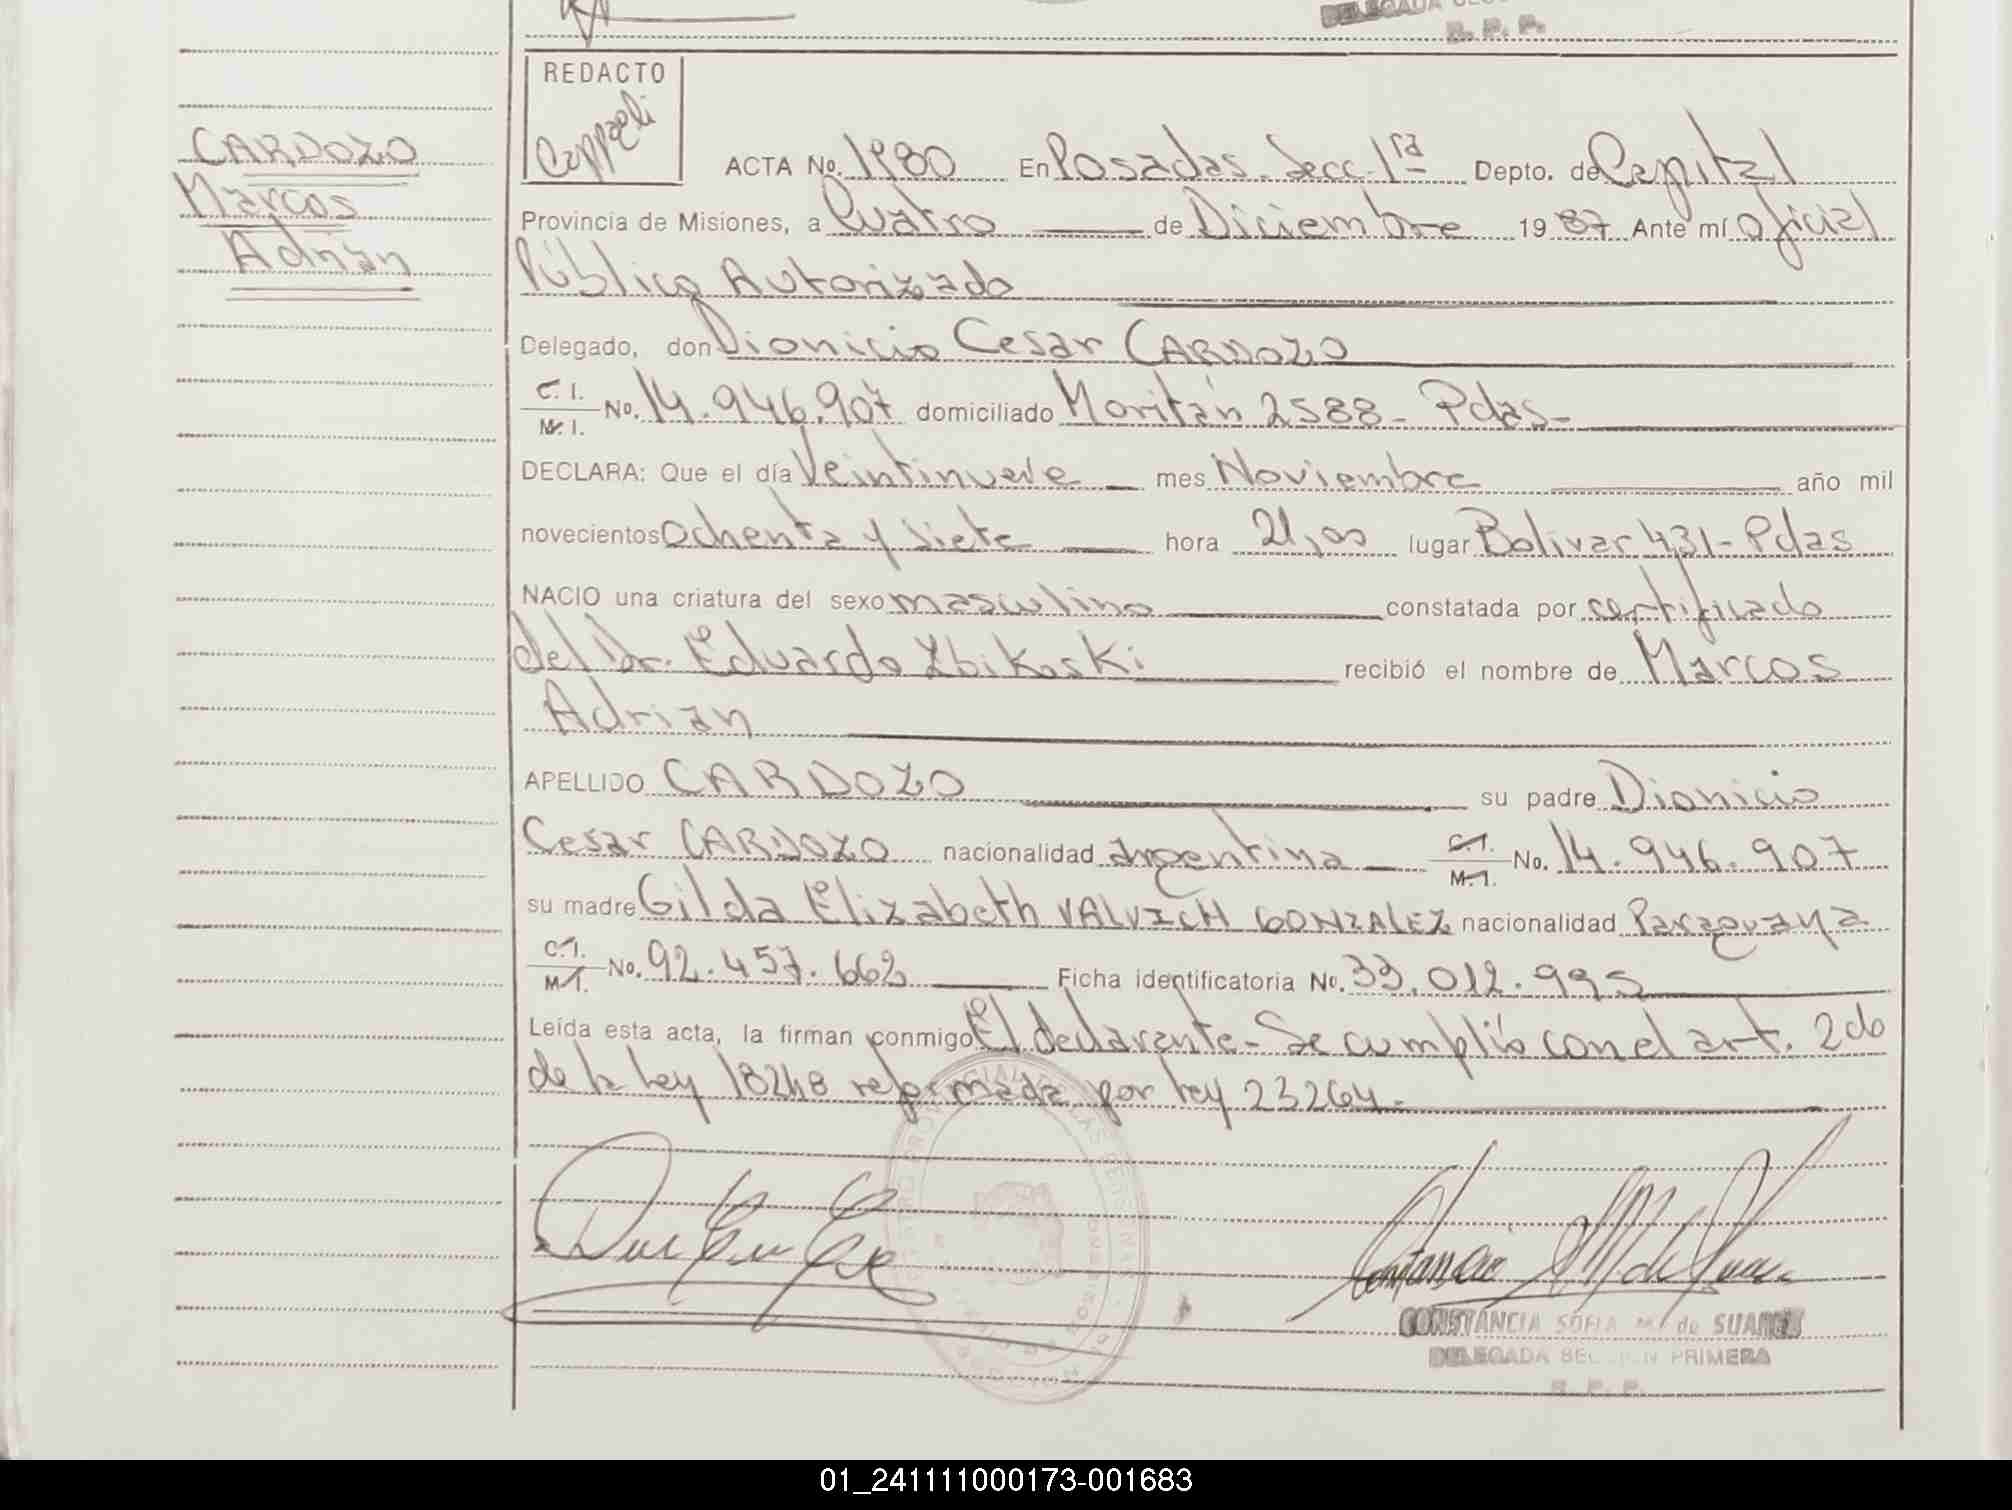 DELEGADA
R. P. P.
REDACTO
CARDOZO
Marcos
Adrián
ACTA No. 1980 En Posadas. Secc. 1ra Depto. de Capital
Provincia de Misiones, a Cuatro de Diciembre 1987 Ante mí oficial
Público Autorizado
Delegado, don Dionicio Cesar CARDOZO
C. I. / M. I. No. 14.946.907 domiciliado Moritán 2588 - Pdas -
DECLARA: Que el día Veintinueve mes Noviembre año mil
novecientos ochenta y siete hora 21,00 lugar Bolivar 431 - Pdas
NACIO una criatura del sexo masculino constatada por certificado
del Dr. Eduardo Zbikoski recibió el nombre de Marcos
Adrian
APELLIDO CARDOZO su padre Dionicio
Cesar CARDOZO nacionalidad argentina C.I. / M.I. No. 14.946.907
su madre Gilda Elizabeth VALVICH GONZALEZ nacionalidad Paraguaya
C.I. / M.I. No. 92.457.662 Ficha identificatoria No. 33.012.995
Leída esta acta, la firman conmigo El declarante - Se cumplió con el art. 2do
de la Ley 18248 reformada por ley 23264.-
CONSTANCIA SOFIA M. de SUAREZ
DELEGADA SECCION PRIMERA
R. P. P.
01_241111000173-001683